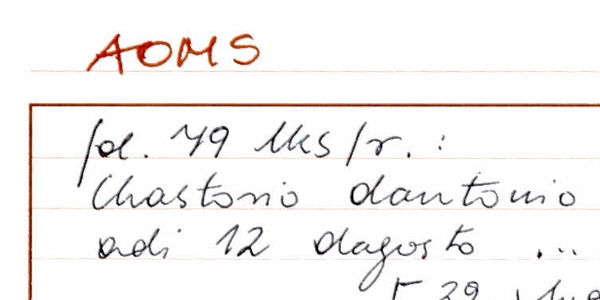 AOMS
fol. 49 lks/r. :
Chastorio dantonio
adi 12 dagosto ...
29